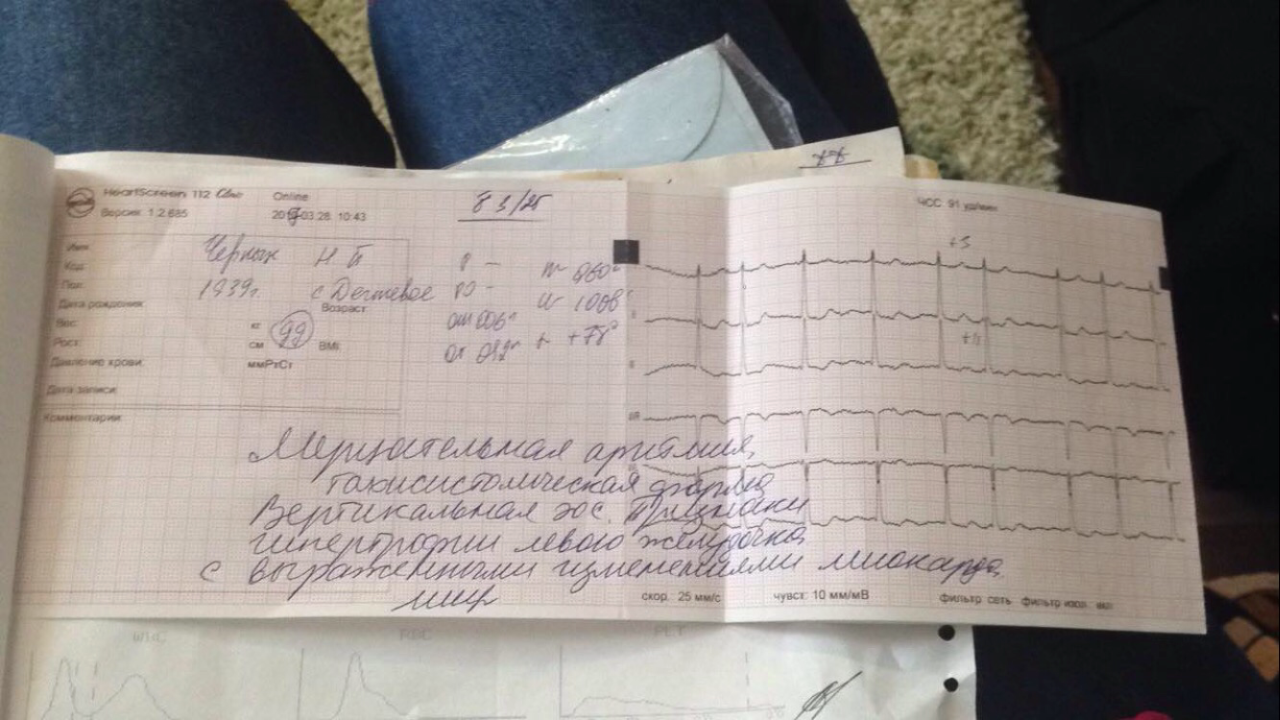 HeartScreen 112 Clinic
Версия: 1.2.685
Online
03.28 10:43
83/25
ЧСС 91 уд/мин
Имя:
Код:
Пол:
Дата рождения:
Вес:
Рост:
Давление крови:
Дата записи:
Черных Н П
1939г. с Дегтевое
Возраст
кг
см
BMI
ммРтСт
99
P –
PQ –
+78°
+S
Комментарии:
Мерцательная аритмия,
тахисистолическая форма
Вертикальная эос. Признаки
гипертрофии левого желудочка
с выраженными изменениями миокарда
скор.: 25 мм/с
чувст: 10 мм/мВ
фильтр сеть фильтр изол. вкл
WBC
RBC
PLT